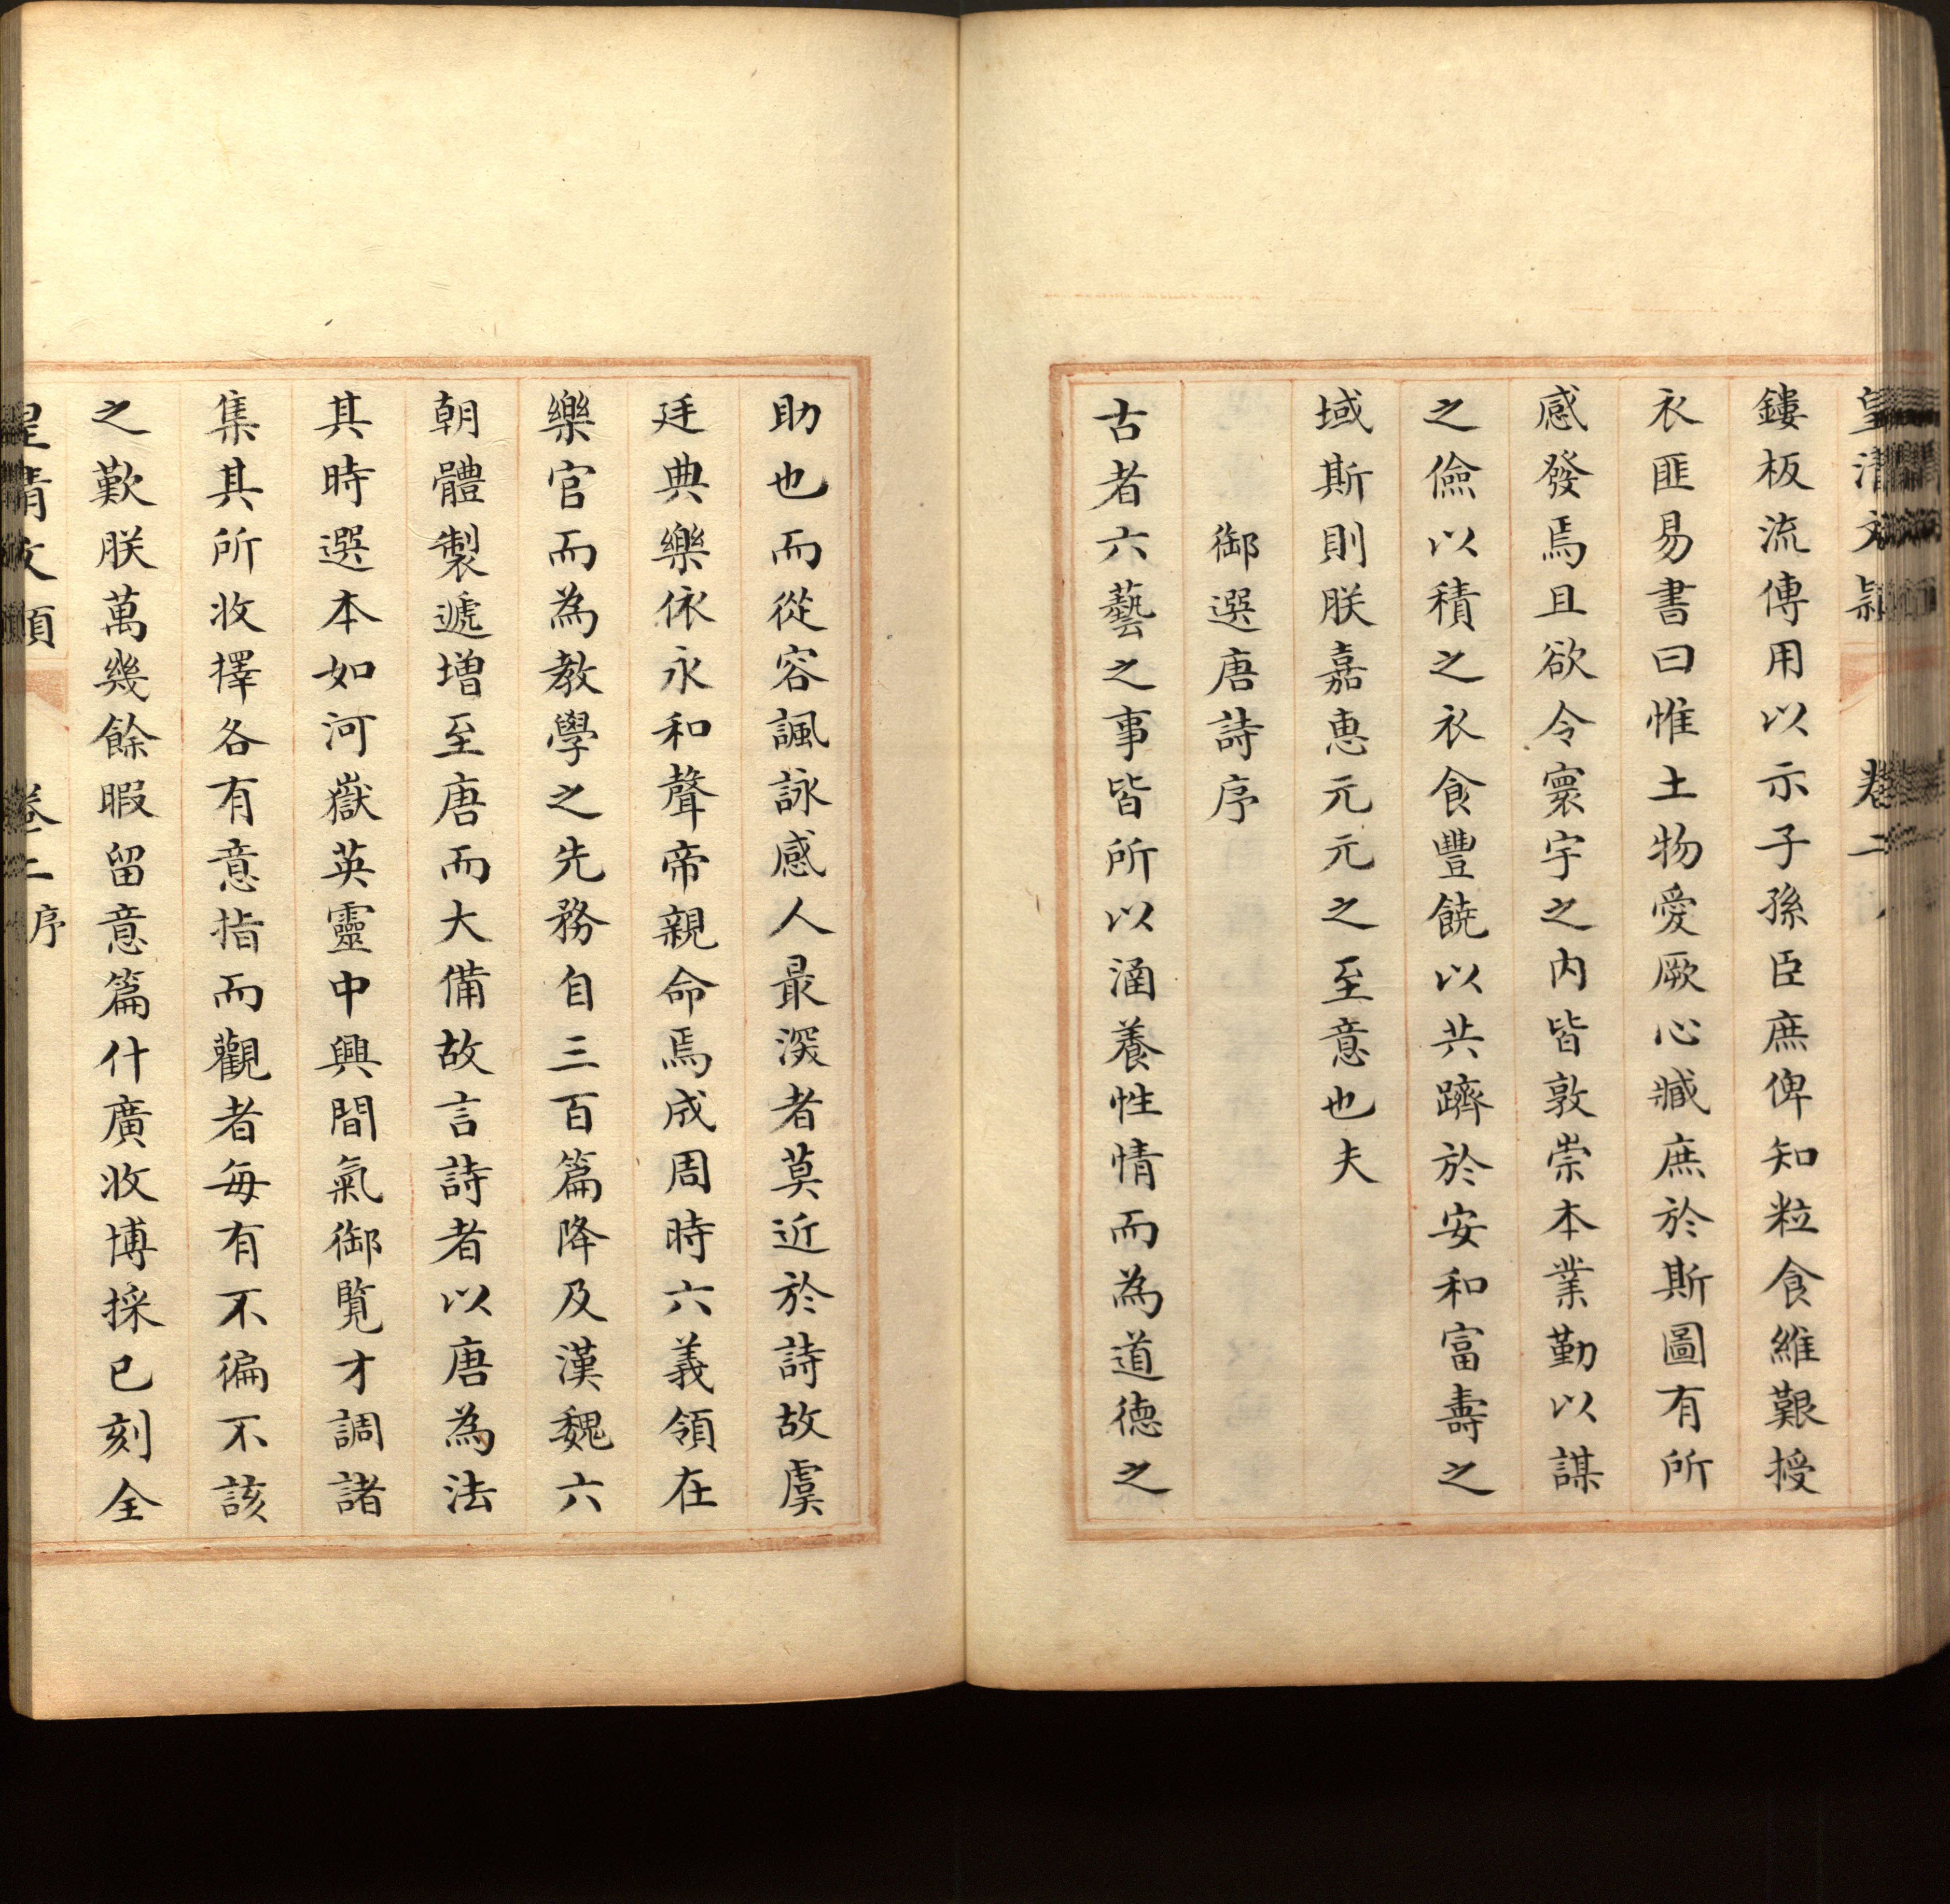 皇清文穎 卷二
鏤板流傳用以示子孫臣庶俾知粒食維艱授
衣匪易書曰惟土物愛厥心臧庶於斯圖有所
感發焉且欲令寰宇之内皆敦崇本業勤以謀
之儉以積之衣食豐饒以共躋於安和富壽之
域斯則朕嘉惠元元之至意也夫
御選唐詩序
古者六藝之事皆所以涵養性情而為道德之
助也而從容諷詠感人最深者莫近於詩故虞
廷典樂依永和聲帝親命焉成周時六義領在
樂官而為教學之先務自三百篇降及漢魏六
朝體製遞增至唐而大備故言詩者以唐為法
其時選本如河嶽英靈中興間氣御覽才調諸
集其所收擇各有意指而觀者每有不徧不該
之歎朕萬幾餘暇留意篇什廣收博採已刻全
皇清文穎 卷二 序